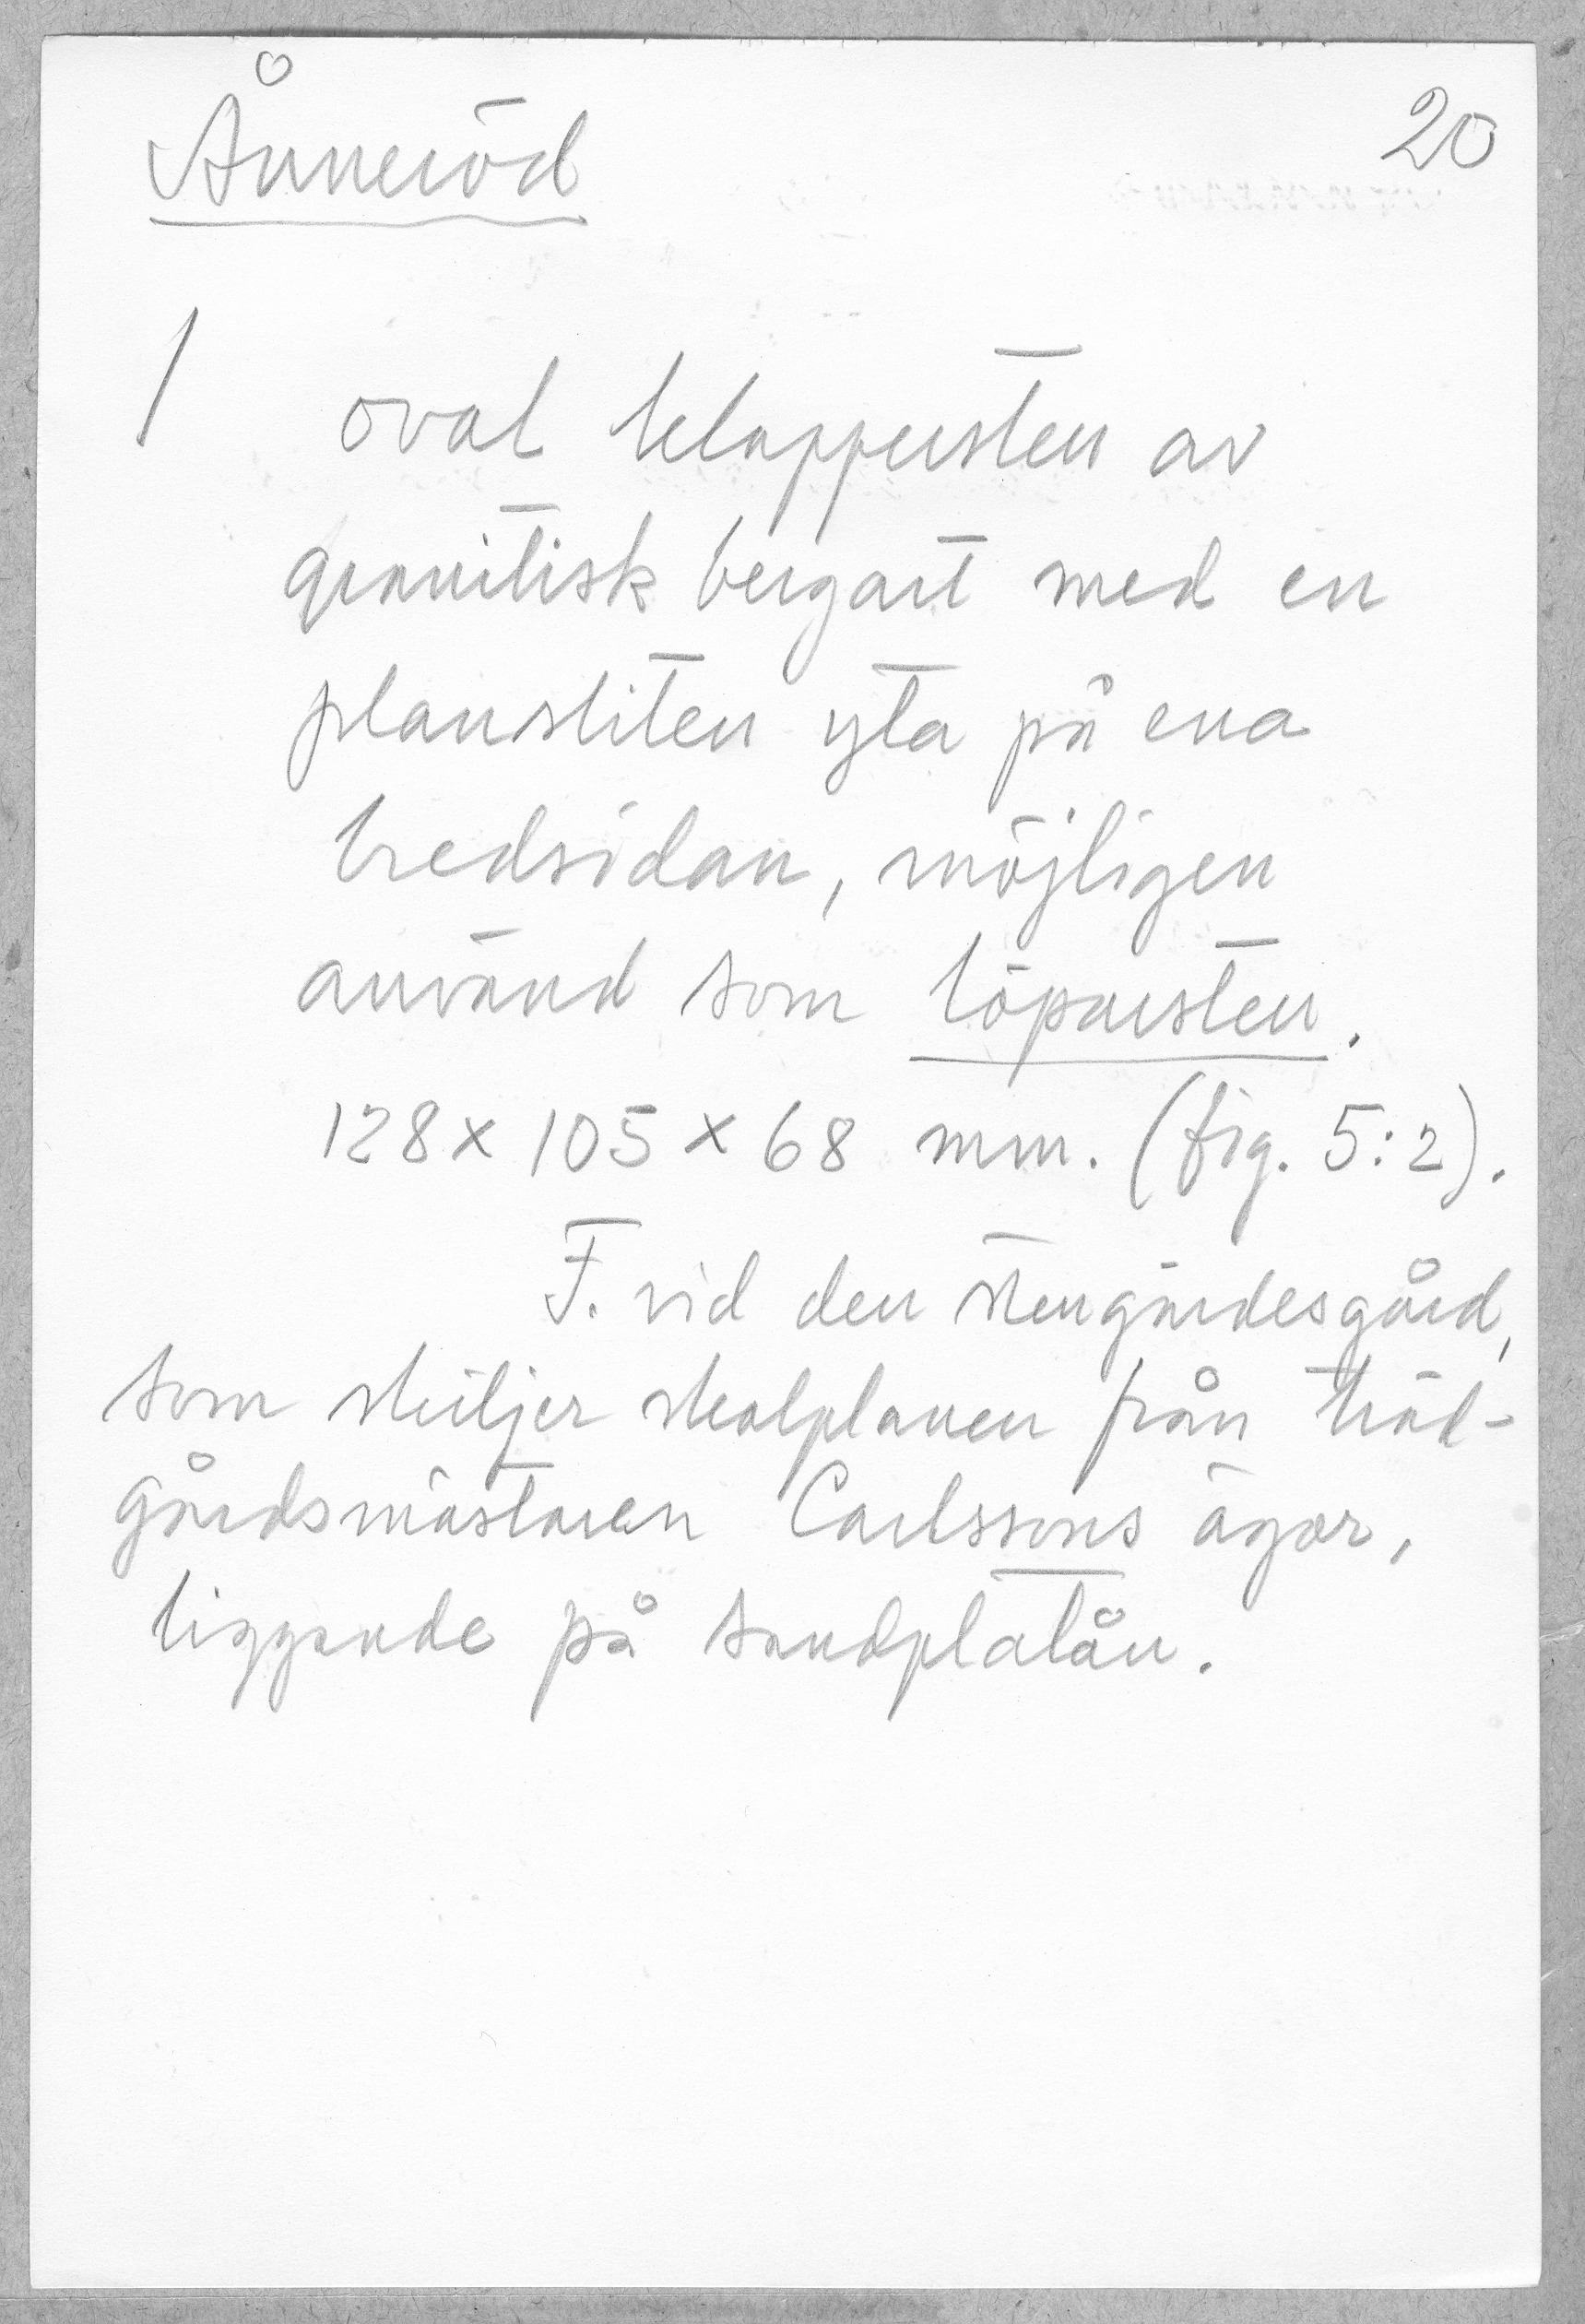 Ånneröd
20
1 oval klappersten av
granitisk bergart med en
plansliten yta på ena
bredsidan, möjligen
använd som löparsten.
128 x 105 x 68 mm. (fig. 5:2).
F. vid den stengärdesgård,
som skiljer skolplanen från träd-
gårdsmästaren Carlssons ägor,
liggande på sandplatån.